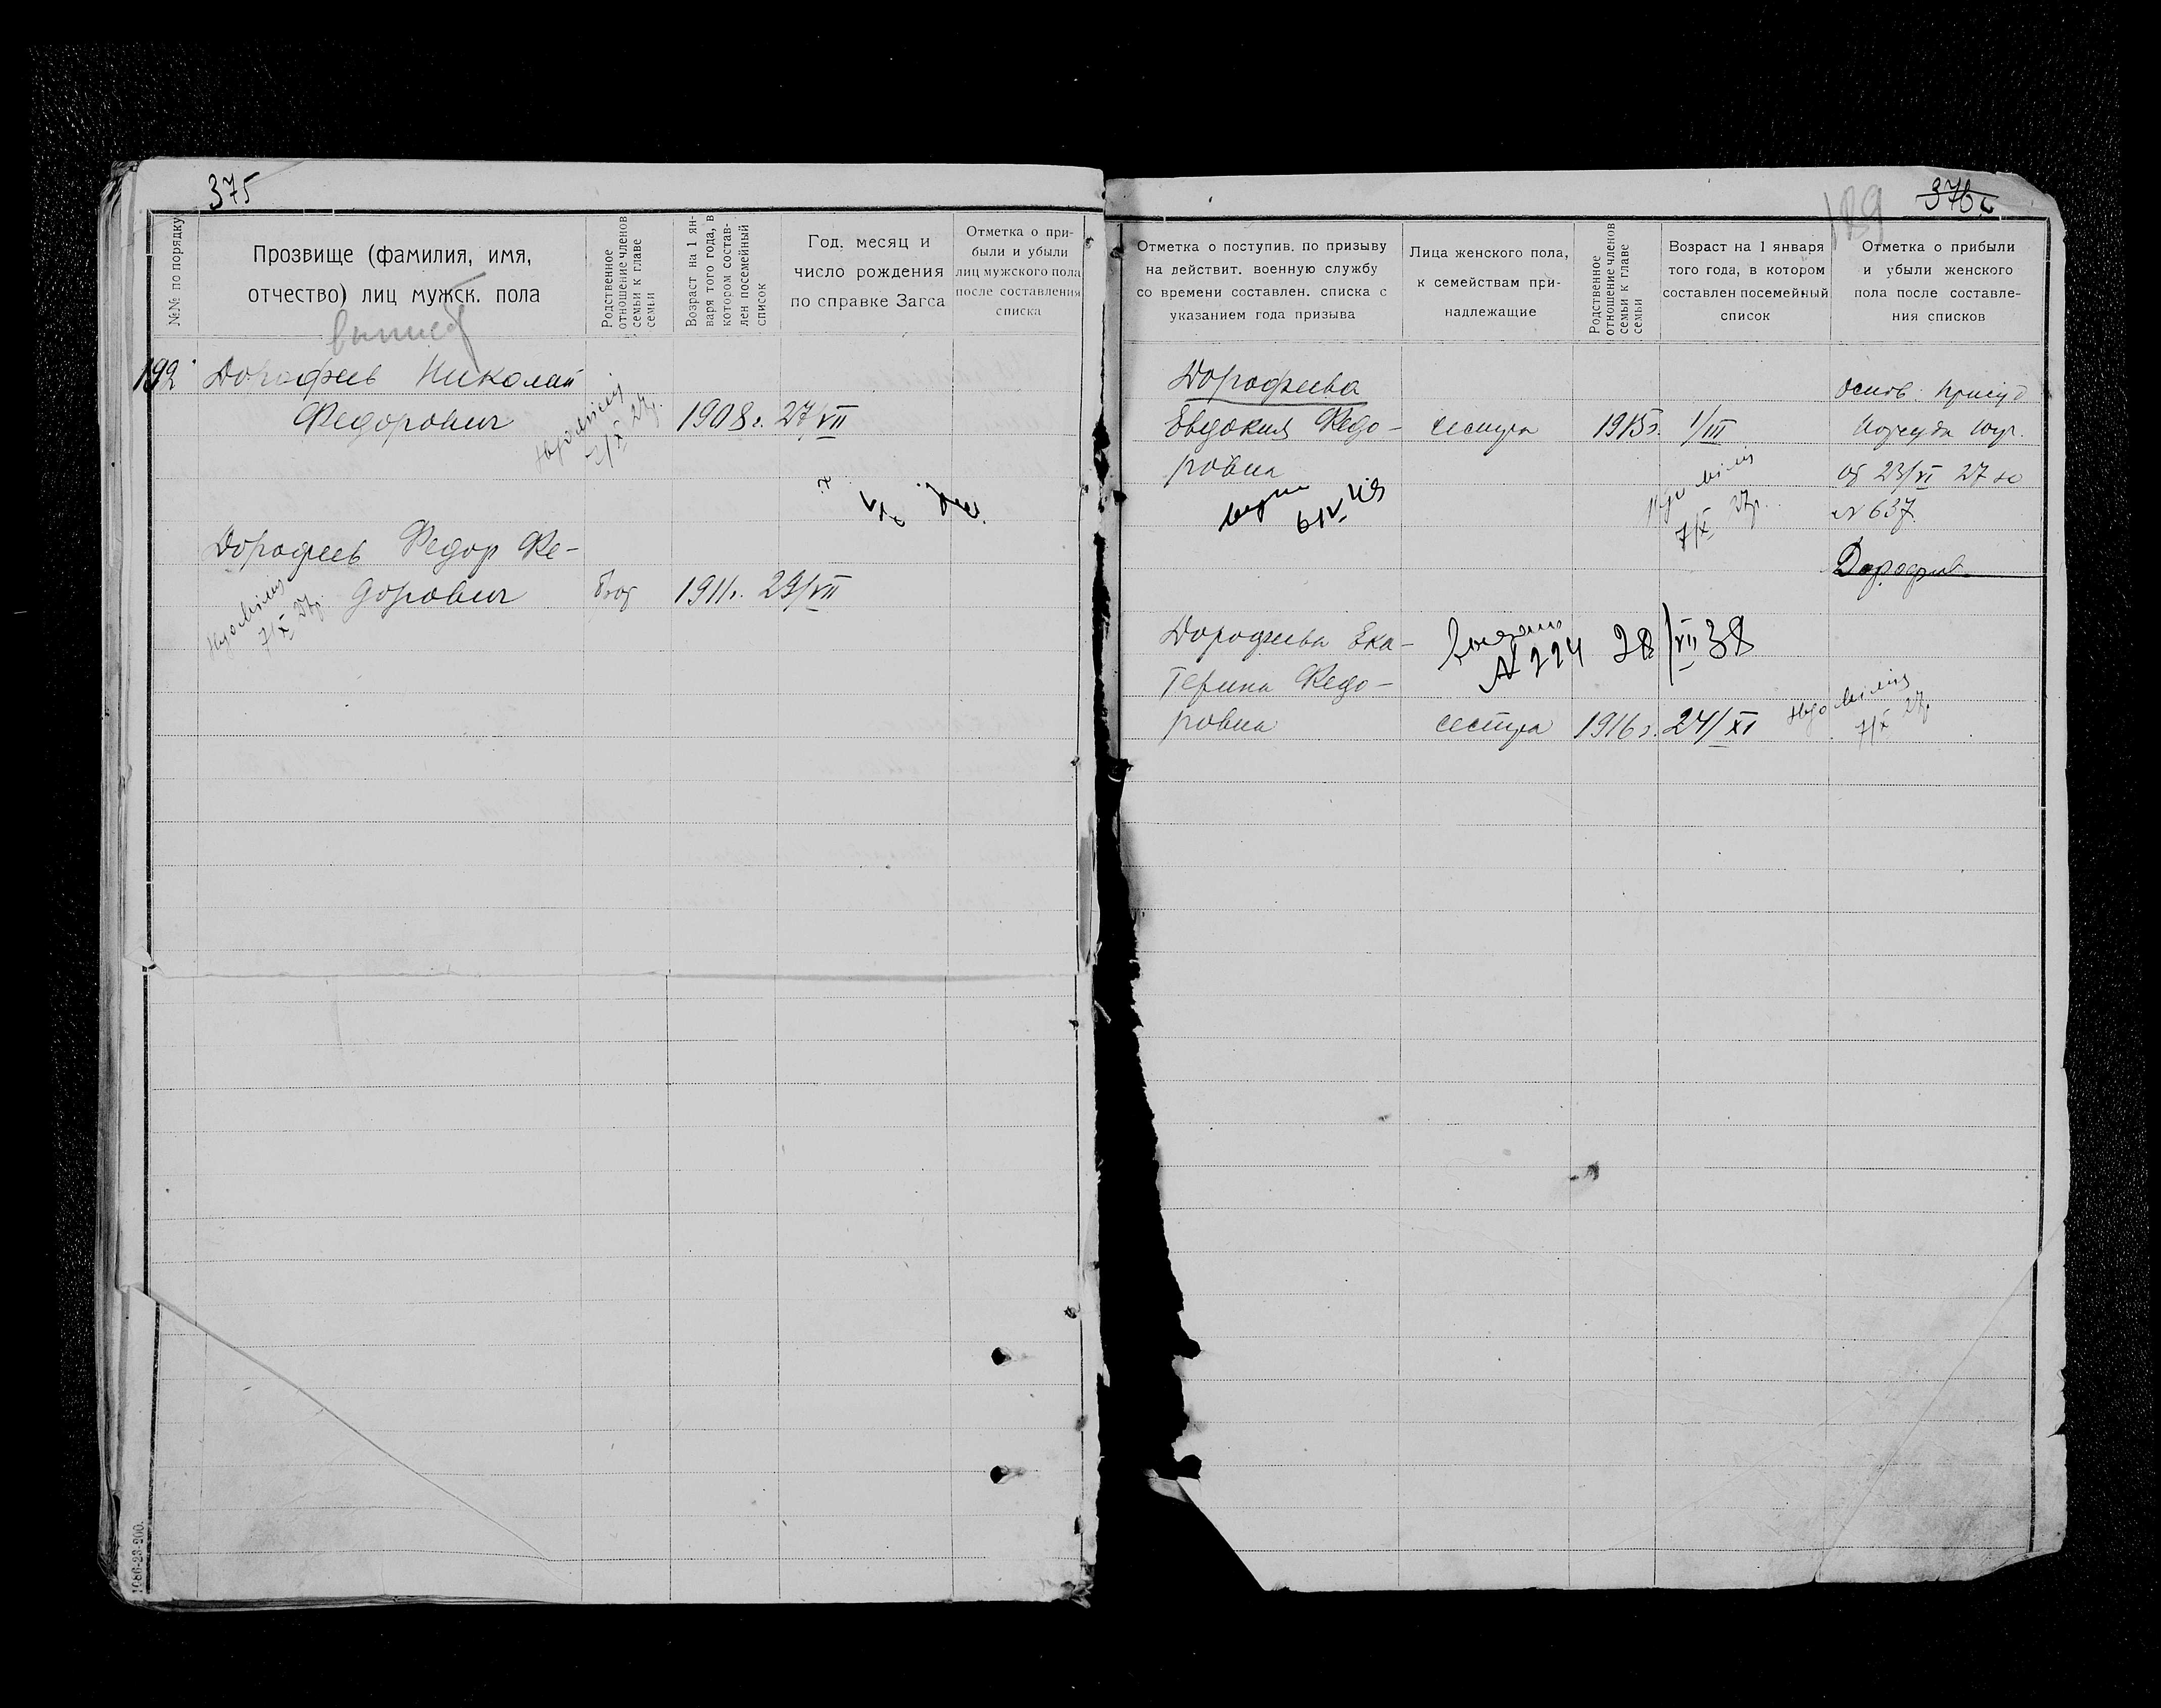 375
№№ по порядку
Прозвище (фамилия, имя,
отчество) лиц мужск. пола
Родственное
отношение членов
семьи к главе
семьи
Возраст на 1 ян-
варя того года, в
котором состав-
лен посемейный
список
Год, месяц и
число рождения
по справке Загса
Отметка о при-
были и убыли
лиц мужского пола
после составления
списка
192
Дорофеев Николай
Федорович 1908 г. 27/VII
Дорофеев Федор Фе-
дорович брат 1911 г. 29/VII
7/X 27 г.
1086-23-200.
189
376
Отметка о поступив. по призыву
на действит. военную службу
со времени составлен. списка с
указанием года призыва
Лица женского пола,
к семействам при-
надлежащие
Родственное
отношение членов
семьи к главе
семьи
Возраст на 1 января
того года, в котором
составлен посемейный
список
Отметка о прибыли
и убыли женского
пола после составле-
ния списков
Дорофеева
Евдокия Федо- сестра 1915 г. 1/III
ровна
7/X 27 г.
от 23/VI 27
№ 637.
Дорофеев
Дорофеева Ека-
терина Федо-
ровна сестра 1916 г. 24/XI
№ 224 28/VII 38
7/X 27